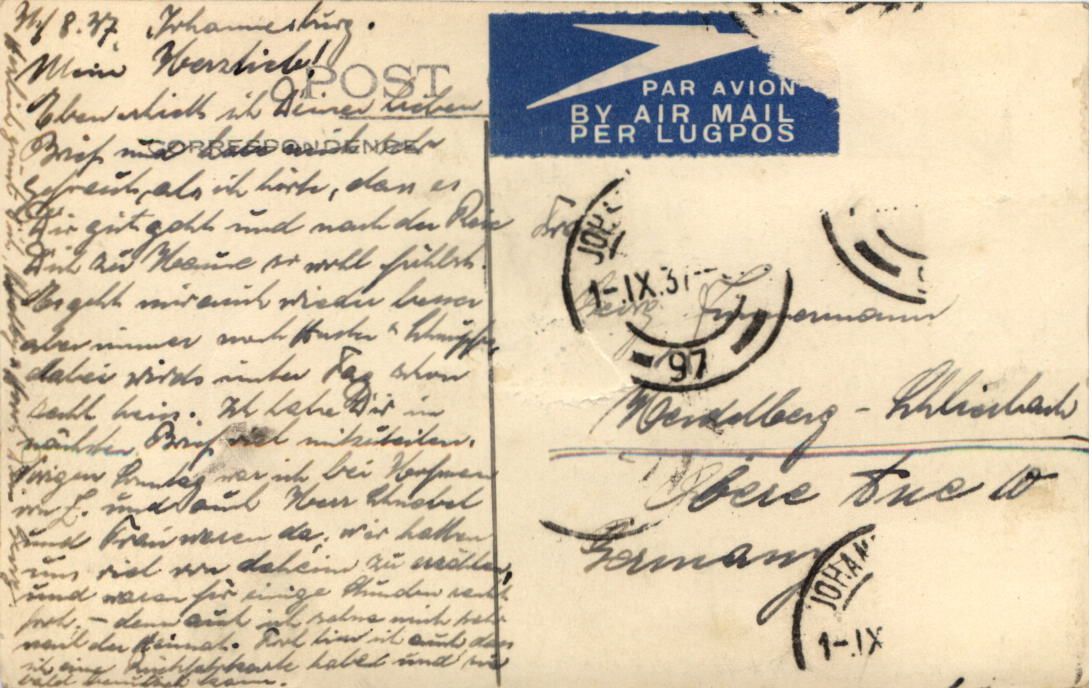 31/8.37. Johannesburg.
Mein Herzlieb!
POST
CORRESPONDENCE
Eben erhielt ich Deinen lieben
Brief und habe mich sehr
gefreut, als ich hörte, dass es
Dir gut geht und nach der Reise
Dich zu Hause so wohl fühlst.
Es geht mir auch wieder besser
aber immer noch Husten & Schnupfen,
dabei wirds unter Tag schon
recht heiss. Ich habe Dir im
nächsten Brief viel mitzuteilen.
Vorigen Sonntag war ich bei Hofmann
und auch Herr Schnabel
und Frau waren da, wir hatten
uns viel von daheim zu erzählen,
und waren für einige Stunden recht
froh. – denn auch ich sehne mich sehr
nach der Heimat. Froh bin ich auch dass
ich eine Rückfahrkarte habe und sie
bald benutzen kann.
PAR AVION
BY AIR MAIL
PER LUGPOS
JOH
1-.IX.37
97
Georg Zimmermann
Heidelberg - Schlierbach
Obere Aue 10
Germany
JOHAN
1-.IX